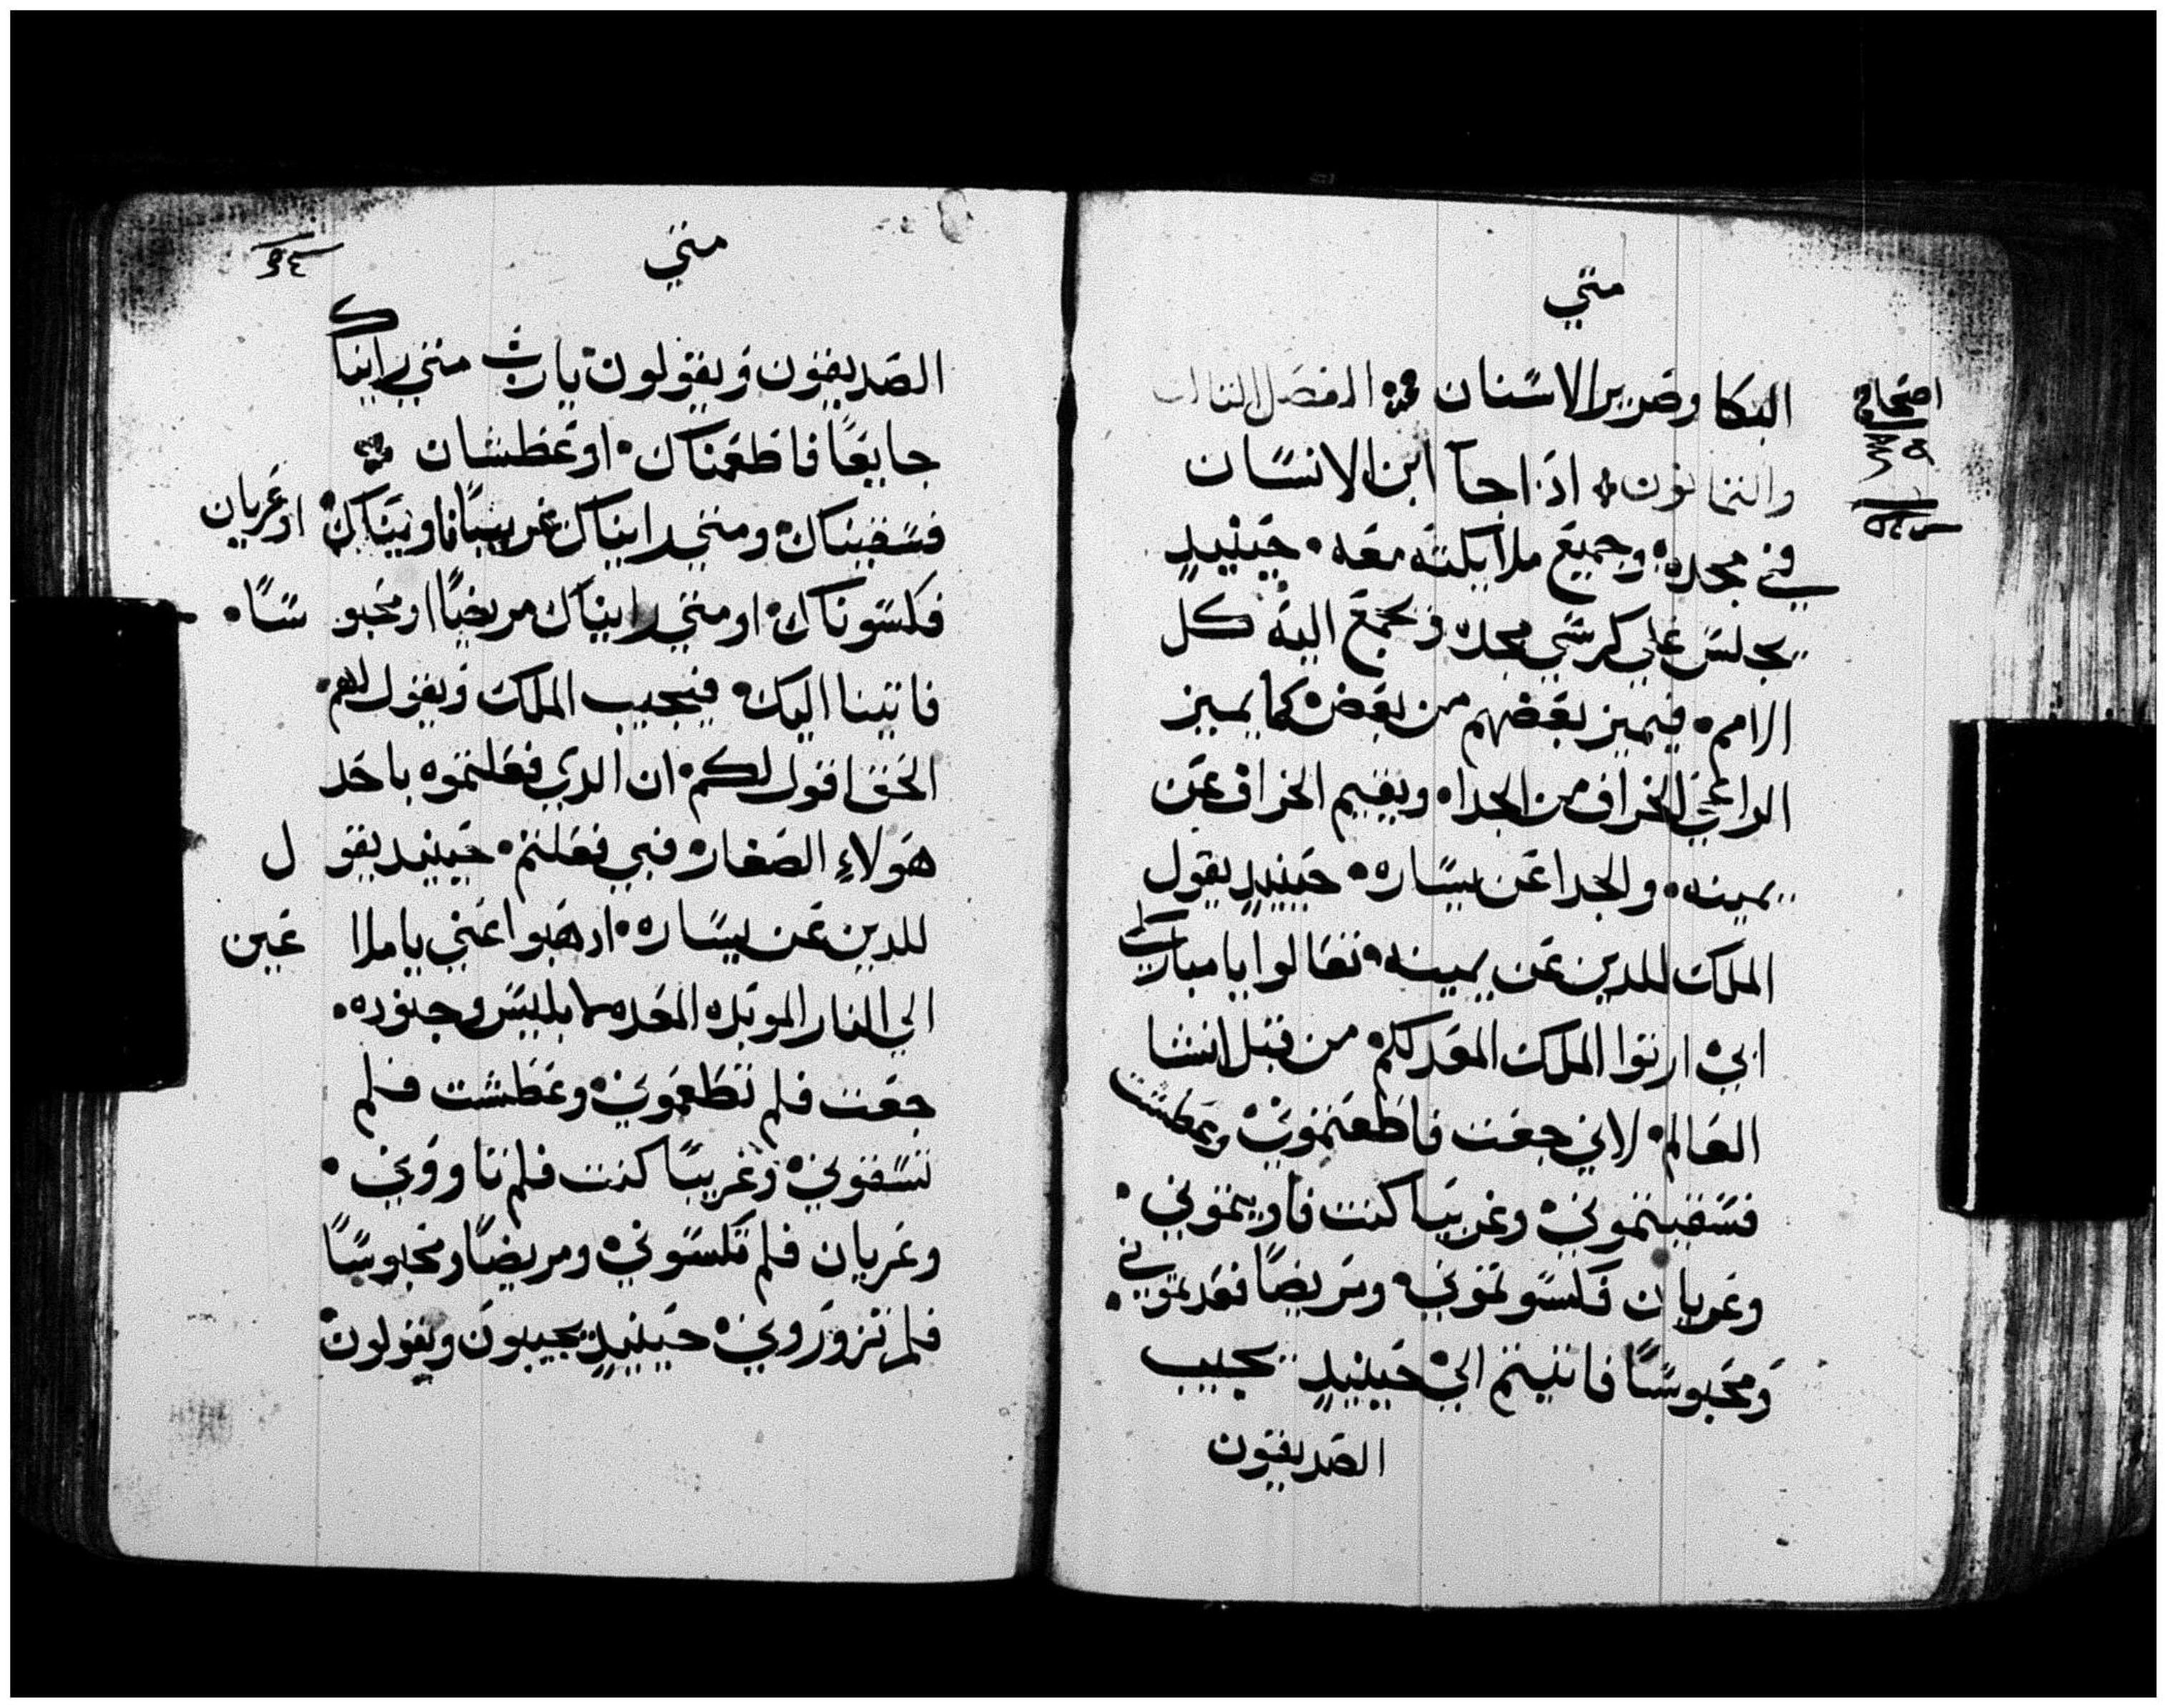 متي
البكا وصرير الاسنان الفصل الثالث
والثمانون اذا جآ ابن الانسان
في مجده وجميع ملايكته معه حينيدٍ
يجلس علي كرسي مجده ويجمع اليه كل
الامم فيميز بعضهم من بعض كما يميز
الراعي الخراف من الجدا ويقيم الخراف عن
يمينه والجدا عن يساره حينيدٍ يقول
الملك للدين عن يمينه تعالوا يا مباركي
ابي ارتوا الملك المعد لكم من قبل انشا
العالم لاني جعت فاطعمتوني وعطشت
فسقيتموني وغريبا كنت فاويتموني
وعريان فكسوتموني ومريضًا فعدتموني
ومحبوسًا فاتيتم الي حينيدٍ يجيب
الصديقون
اصحاح
متي
الصديقون ويقولون يارب متي رايناك
جايعًا فاطعمناك اوعطشان
فسقيناك ومتي رايناك غريبًا فاويناك اوعريان
فكسوناك او متي رايناك مريضًا او محبوسًا
فاتينا اليك فيجيب الملك ويقول لهم
الحق اقول لكم ان الدي فعلتموه باحد
هولاءِ الصغار فبي فعلتم حينيد يقول
للدين عن يساره ادهبوا عني يا ملاعين
الي النار الموبده المعده لابليس وجنوده
جعت فلم تطعموني وعطشت فلم
تسقوني وغريبًا كنت فلم تاووني
وعريان فلم تكسوني ومريضًا ومحبوسًا
فلم تزوروني حينيدٍ يجيبون ويقولون